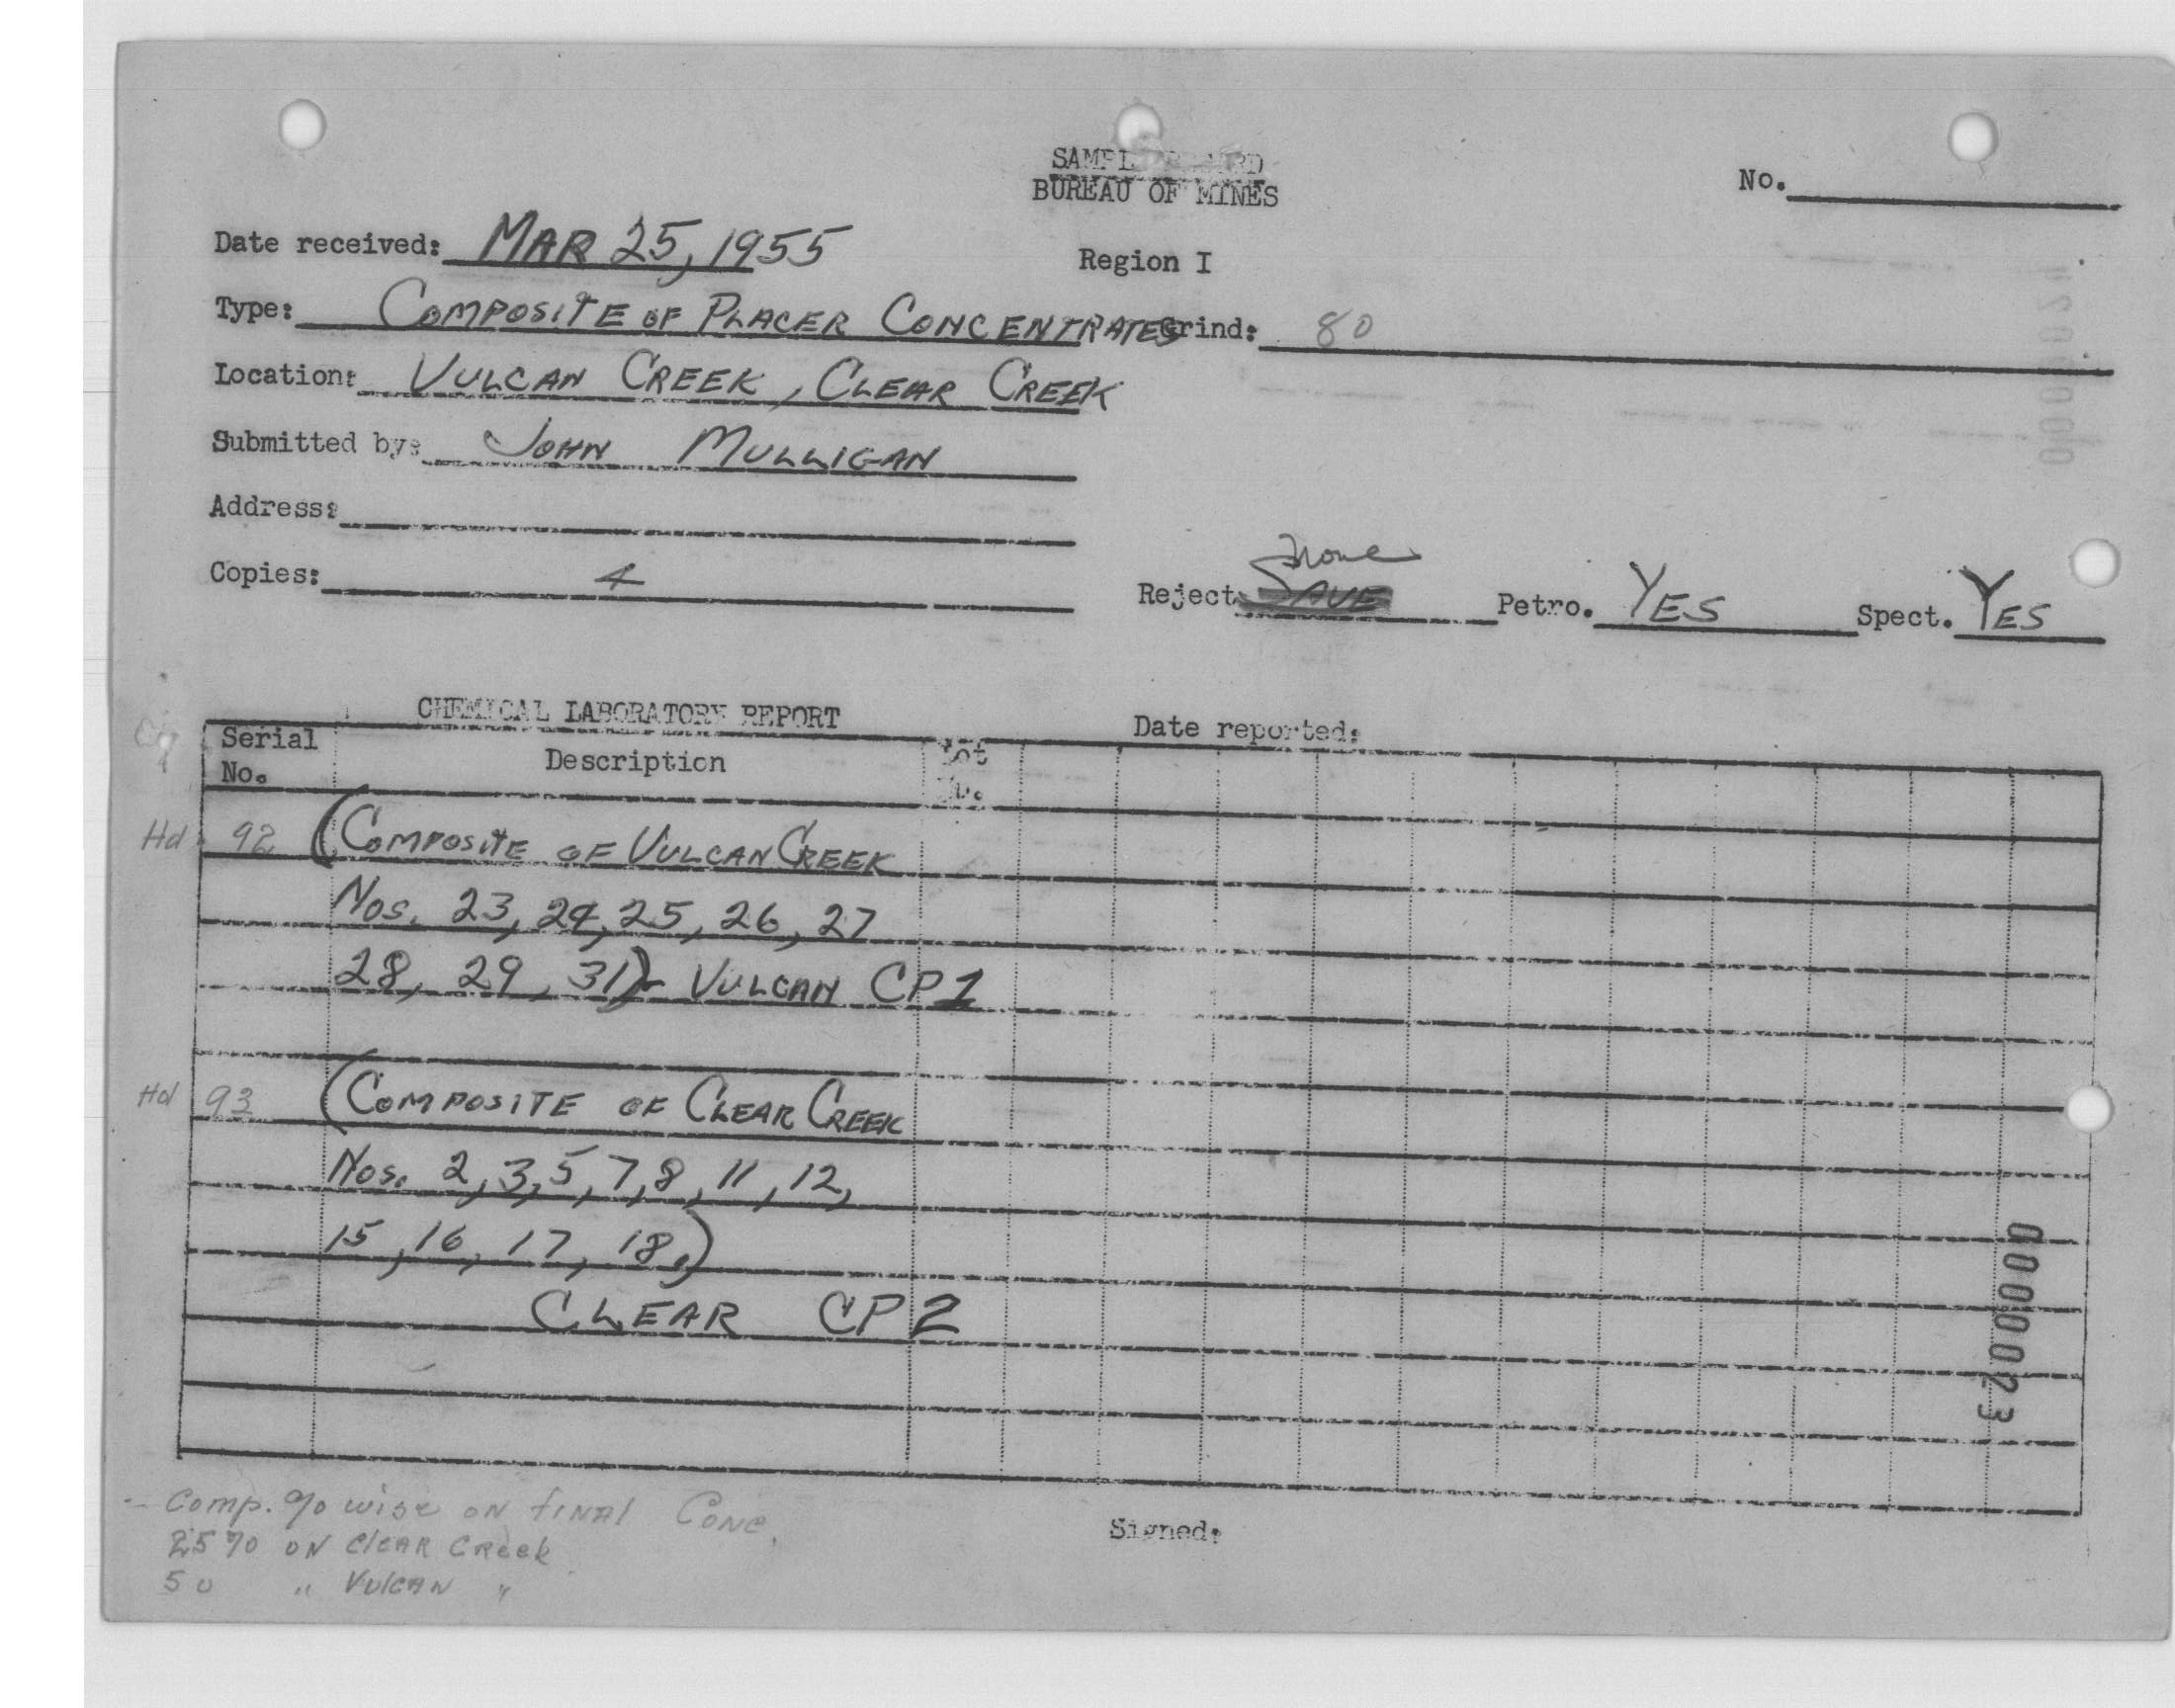 BUREAU OF MINES
No.
Date received: MAR 25, 1955
Region I
Type: COMPOSITE OF PLACER CONCENTRATES Grind: 80
Location: VULCAN CREEK, CLEAR CREEK
Submitted by: JOHN MULLIGAN
Address:
Copies: 4
None
Reject SAVE Petro. YES Spect. YES
CHEMICAL LABORATORY REPORT Date reported:
Serial No. Description
Hd 92 (COMPOSITE OF VULCAN CREEK
Nos. 23, 24, 25, 26, 27
28, 29, 31) - VULCAN CP1
Hd 93 (COMPOSITE OF CLEAR CREEK
Nos. 2, 3, 5, 7, 8, 11, 12,
15, 16, 17, 18.)
CLEAR CP2
0000023
- Comp. % wise on final Conc.
25% ON CLEAR Creek
50 " VULCAN "
Signed: